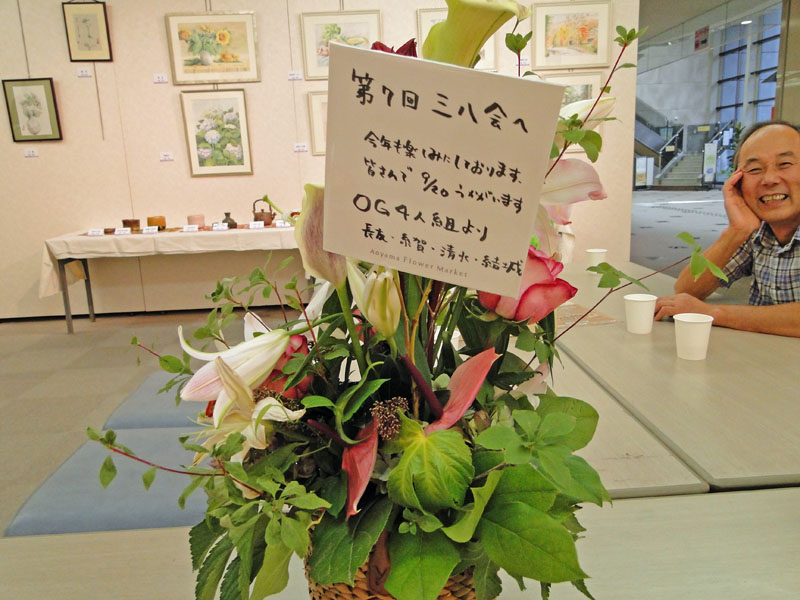 第7回 三八会へ
今年も楽しみにしております。
皆さんで 9/20 うかがいます
OG4人組より
長友・糸賀・清水・結城
Aoyama Flower Market